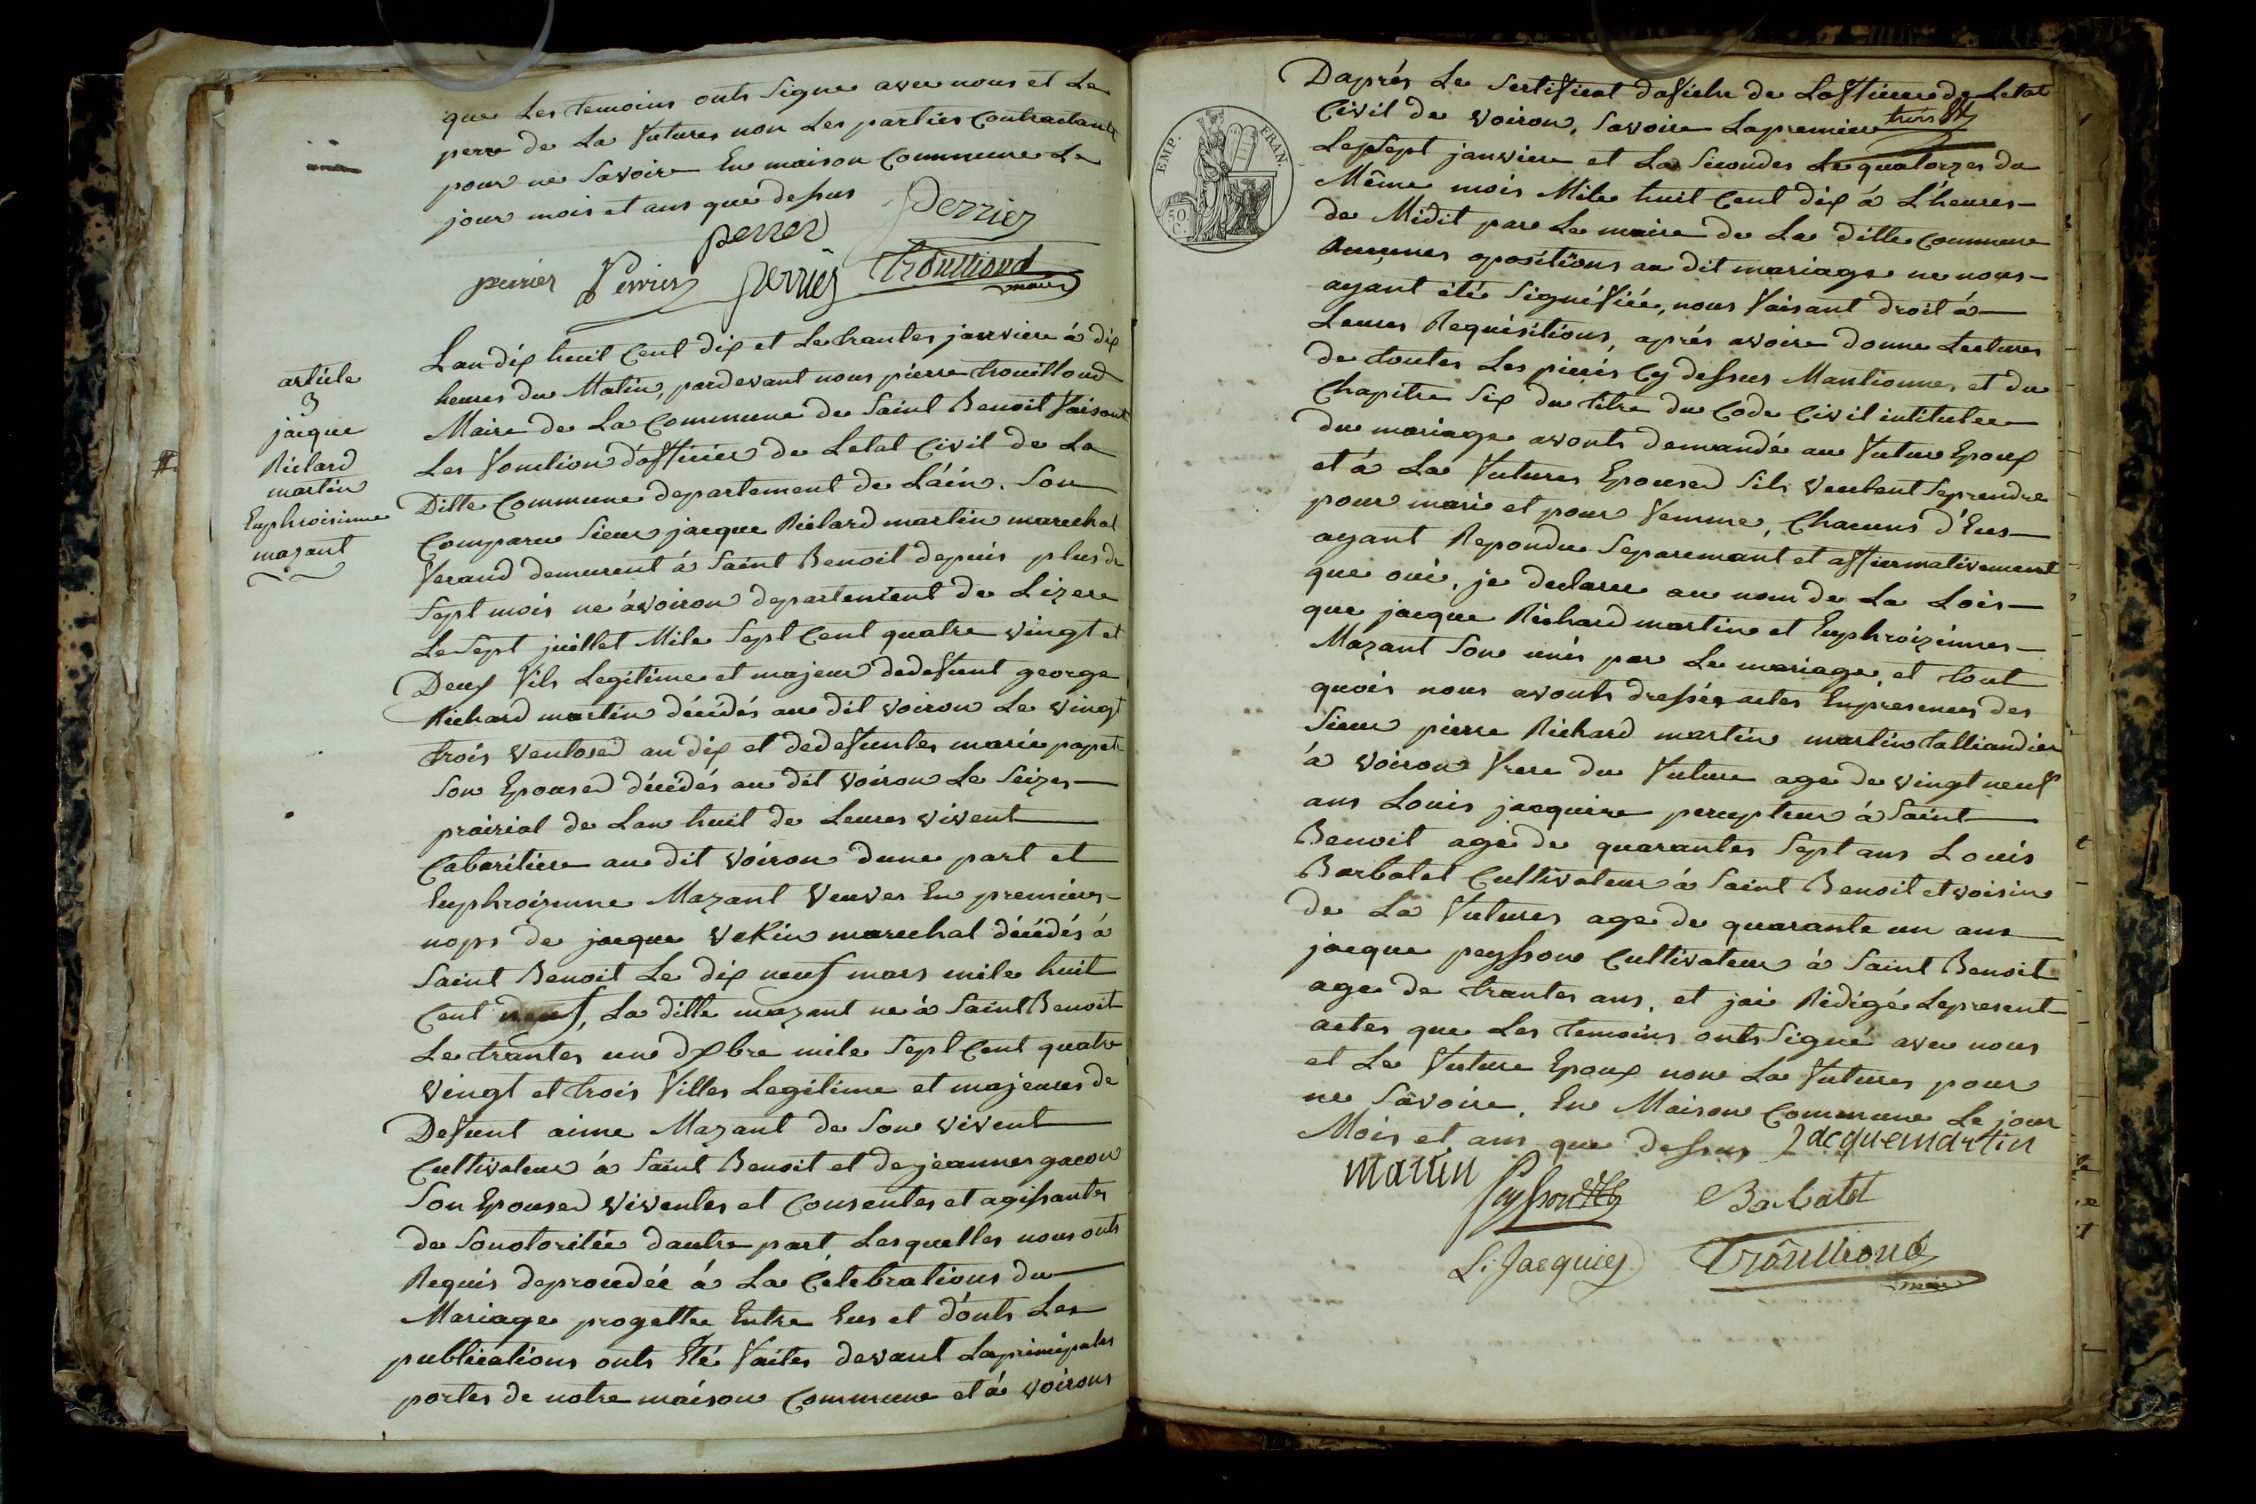 que Les temoins onts Signe avec nous et Le
pere de La Vuture non Les parties Contractante
pour ne Savoire En maison Commune Le
jour mois et ans que dessus
perrier
perier
perrier perrier perrier Trouilloud
maire
article
3
jacque
Richard
martin
Euphroisinne
mazant
Lan dix huit Cent dix et Le trantes janviere à dix
heures du Matin, pardevant nous pierre trouilloud
Maire de La Commune de Saint Benoit Vaisant
Les Vonction d'officier de Letat Civil de La
Ditte Commune departement de L'áin. Son
Comparu Sieur jacque Richard martin marechal
Verand demeurent à Saint Benoit depuis plus de
Sept mois ne à voiron departement de Lizere
Le Sept juillet Mile Sept Cent quatre vingt et
Deux Vils Legitime et majeur dedefunt george
Richard martin décédés au dit voiron Le vingt
trois ventosed an dix et dedefuntes marie papet
Son Epoused décédés au dit voiron Le Seizes
prairial de Lan huit de Leures vivent
Cabaritiere au dit voiron dune part et
Euphroizinne Mazant Veuves En premieres
nops de jacque Vekin marechal décédés à
Saint Benoit Le dix neuf mars mile huit
Cent neuf, La ditte mazant ne à Saint Benoit
Le trantes une dxbre mile Sept Cent quatre
vingt et trois Villes Legitime et majeures de
Defunt aime Mazant de Son vivent
Cultivateur à Saint Benoit et de jeannes gacon
Son Epoused viventes et Consentes et agissantes
de Sonotoritée dautre part Lesquelles nous onts
Requis deprocedée à La Célébrations du
Mariage progettee Entre Eus et d'onts Les
publications onts Eté Vaites devant Laprincipales
portes de notre máison Commune et à voirons
EMP. FRAN.
50 C.
Daprés Le Sertificat dafiche de Lofficiere de Letat
Civil de voiron, Savoire Lapremiere
Le Sept janviere et La Secondes Le quatorzes du
Même mois Mile huit Cent dix à L'heures
de Midit pare Le maire de La ditte Commune
Aucunes opositions au dit mariage ne nous
ayant été Signifiée, nous Vaisant droit à
Leures Requisitions, aprés avoire donne Lectures
de toutes Les pieces Cy dessus Mantionnes et du
Chapitre Six du titre du Code Civil intitulee
du mariage avonts demandé au Vuture Epoux
et à La Vutures Epoused Sils veulent Seprendre
pour mari et pour Vemme, Chacuns d'Eus
ayant Repondu Separemant et affiermativement
que oui, je declare au nom de La Lois
que jacque Richard martin et Euphroizinnes
Mazant Son unis par Le mariage, et tout
quois nous avonts dressés actes Enpresences des
Sieur pierre Richard martin martin talliandier
à voiron Vrere du Vuture age de vingt neuf
ans Louis jacquiere percepteur à Saint
Benoit age de quarantes Sept ans Louis
Barbatet Cultivateur à Saint Benoit et voisin
de La Vutures age de quarante un ans
jacque peysson Cultivateur à Saint Benoit
age de trantes ans, et jai Rédigé Lepresent
actes que Les temoins onts Signé avec nous
et Le Vuture Epoux non La Vutures pour
ne Savoire, En Maison Commune Le jour
Mois et ans que dessus Jacquemartin
martin
Peysson Barbatet
L. Jacquier Trouilloud
maire